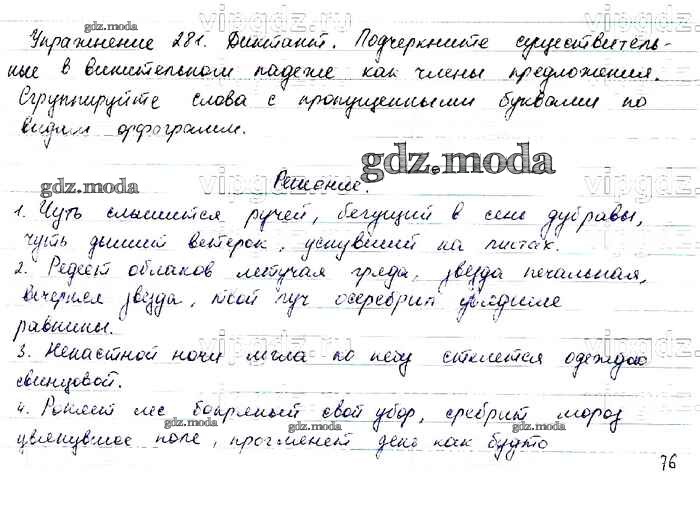 Упражнение 281. Диктант. Подчеркните существитель-
ные в винительном падеже как члены предложения.
Сгруппируйте слова с пропущенными буквами по
видам орфограмм.
Решение.
1. Чуть слышится ручей, бегущий в сень дубравы,
чуть дышит ветерок, уснувший на листах.
2. Редеет облаков летучая гряда, звезда печальная,
вечерняя звезда, твой луч осеребрил увядшие
равнины.
3. Ненастной ночи мгла по небу стелется одеждою
свинцовой.
4. Роняет лес багряный свой убор, сребрит мороз
увянувшее поле, проглянет день как будто
76
gdz.moda
gdz.moda
gdz.moda
gdz.moda
gdz.moda
gdz.moda
vipgdz.ru
vipgdz.ru
vipgdz.ru